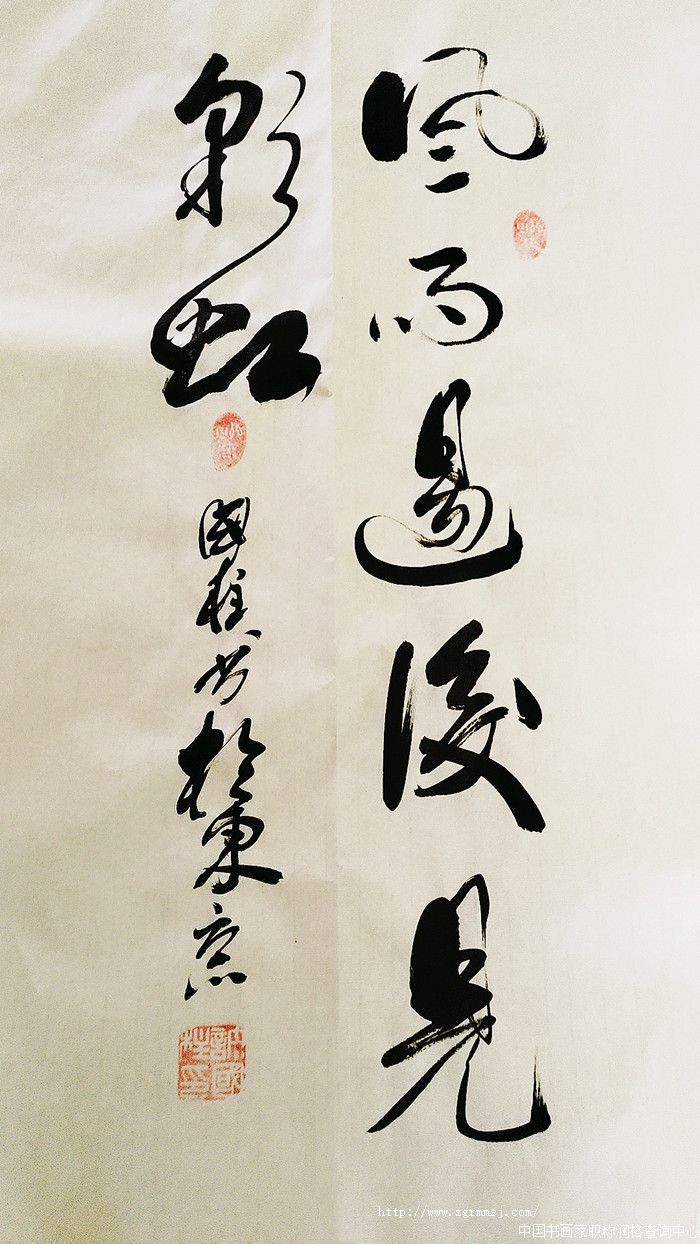 風雨過後見
彩虹
國柱书於東京
http://www.zgrmmsj.com/
中国书画家职称润格查询中心